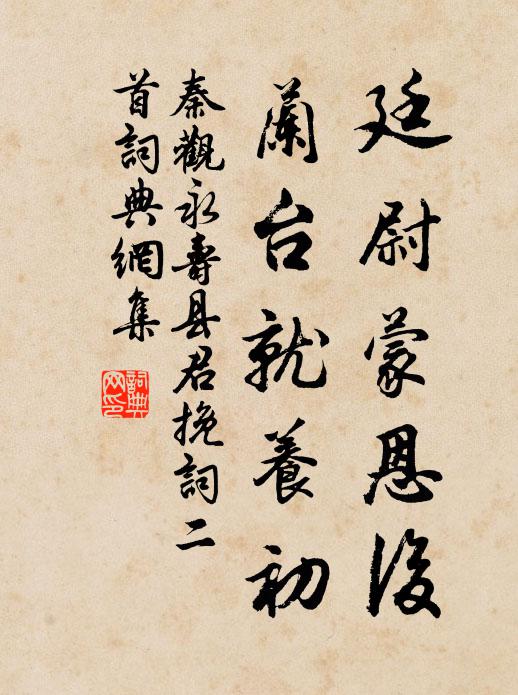 廷尉蒙恩後
蘭台就養初
秦觀永壽县君挽詞二
首詞典網集
詞典
网印